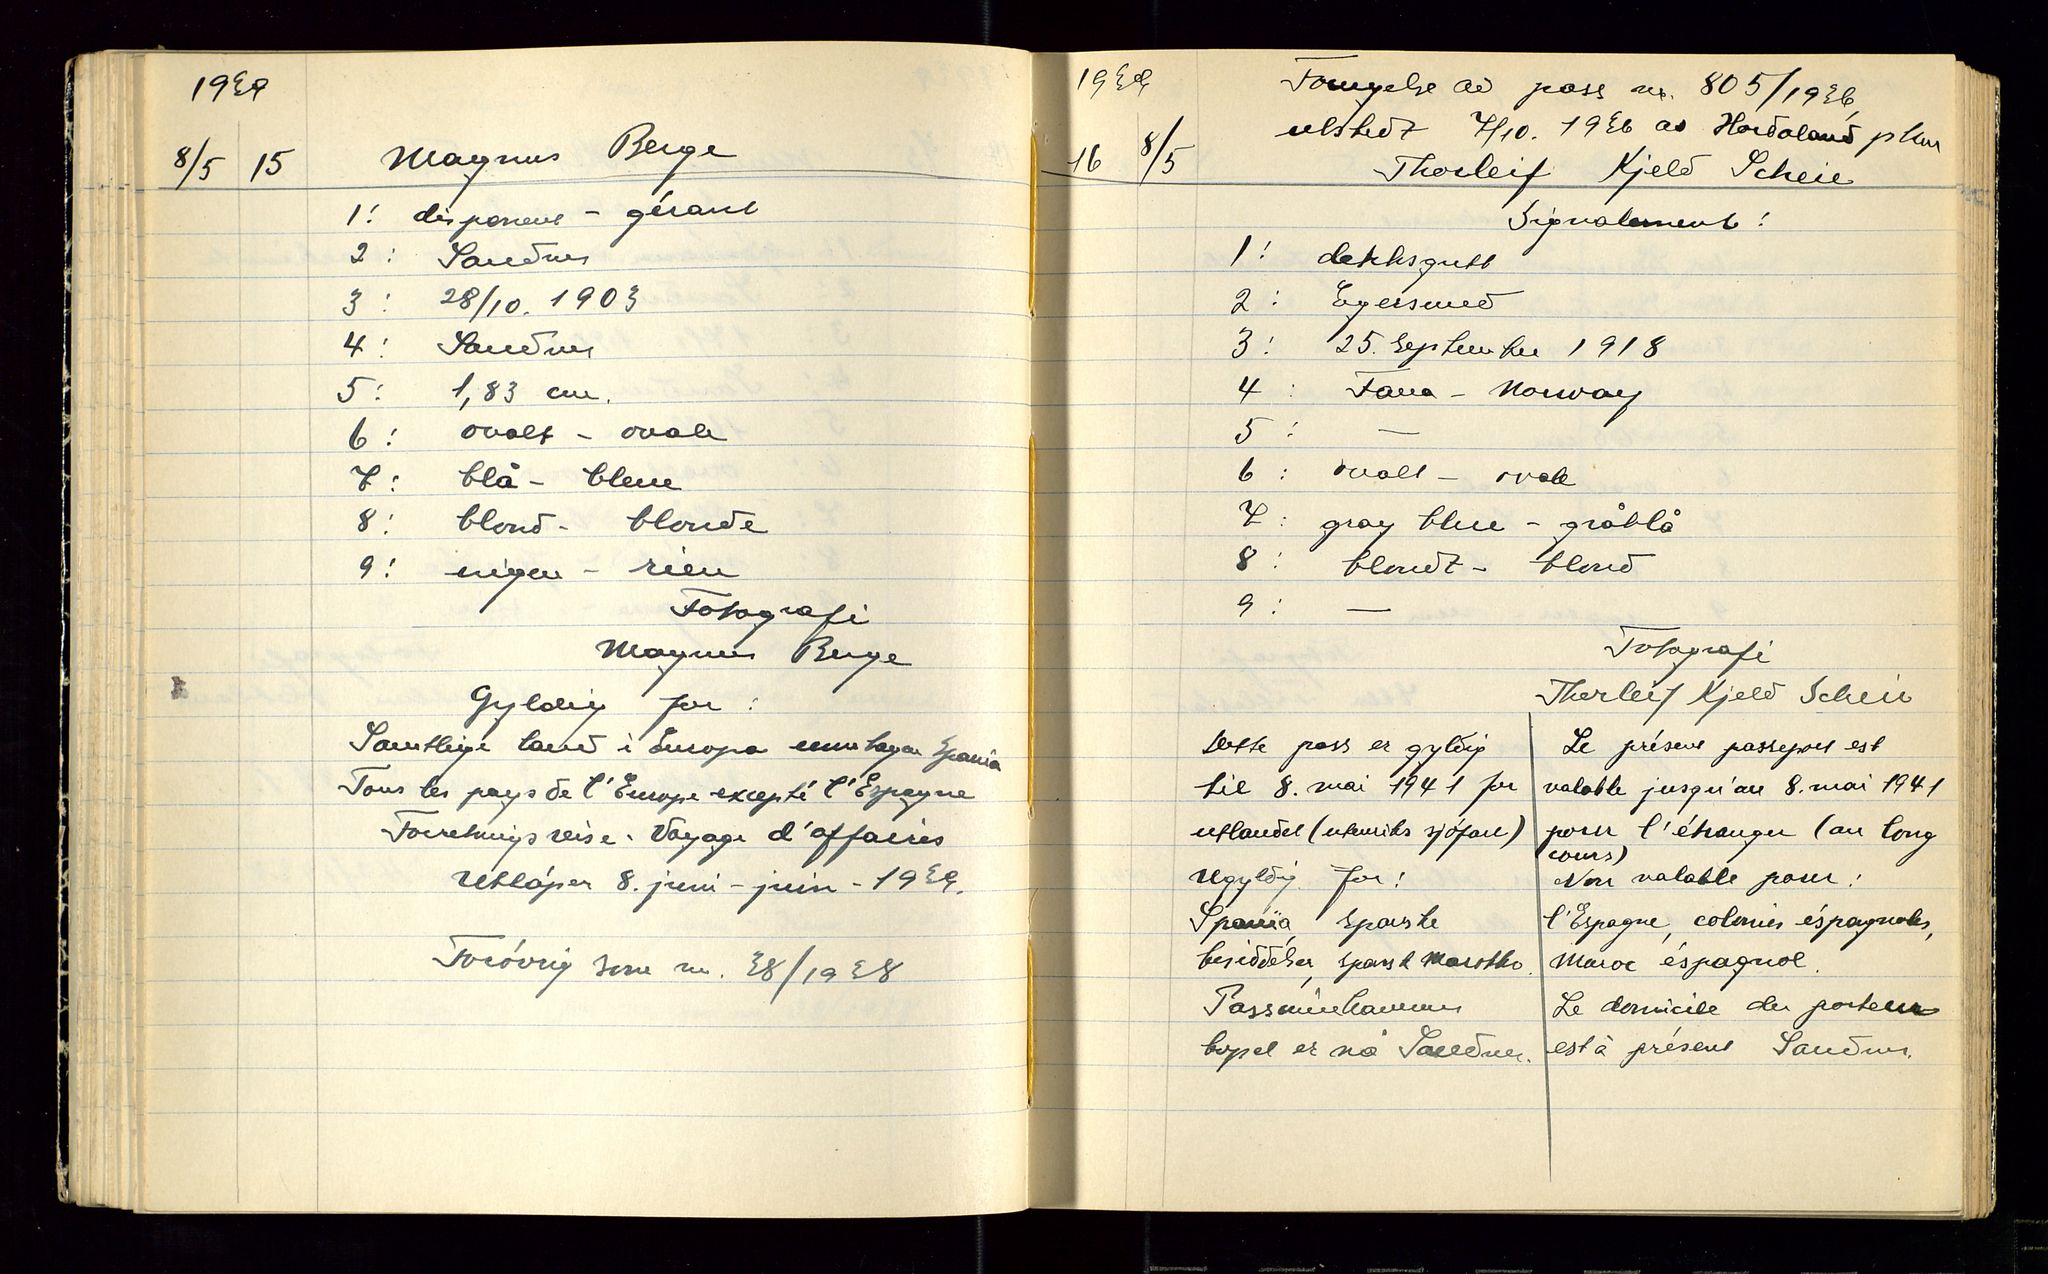 1939
8/5 15 Magnus Berge
1: disponent - gérant
2: Sandnes
3: 28/10. 1903
4: Sandnes
5: 1,83 cm.
6: ovalt - ovale
7: blå - bleue
8: blond - blonde
9: ingen - rien
Fotografi
Magnus Berge
Gyldig for:
Samtlige land i Europa unntagen Spania
Tous les pays de l'Europe excepté l'Espagne
Forretningsreise. Voyage d'affaires
Utløper 8. juni - juin - 1939.
Forøvrig som nr. 38/1938
1939
16 8/5
Fornyelse av pass nr. 805/1936,
utstedt 7/10. 1936 av Hordaland pkm
Thorleif Kjeld Scheie
Signalement:
1: dekksgutt
2: Egersund
3: 25. September 1918
4: Fana - Norway
5: —
6: ovalt - ovale
7: gray blue - gråblå
8: blondt - blond
9: —
Fotografi
Thorleif Kjeld Scheie
Dette pass er gyldig
til 8. mai 1941 for
utlandet (utenriks sjøfart)
Ugyldig for:
Spania, spanske
besiddelser, spansk Marokko.
Passinnehaverens
bopel er nå Sandnes.
Le présent passeport est
valable jusqu'au 8. mai 1941
pour l'étranger (au long
cours)
Non valable pour:
l'Espagne, colonies éspagnoles,
Maroc éspagnol.
Le domicile du porteur
est à présent Sandnes.